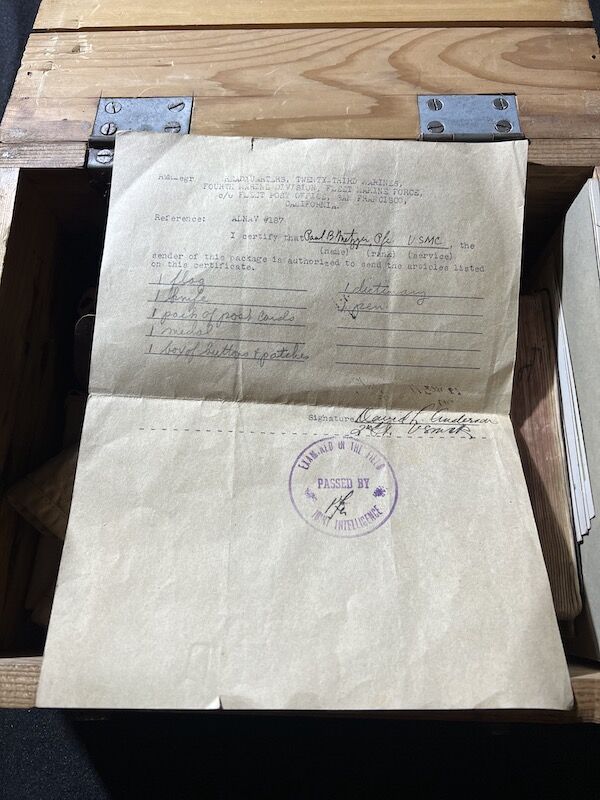 HEADQUARTERS, TWENTY-THIRD MARINES,
FOURTH MARINE DIVISION, FLEET MARINE FORCE,
c/o FLEET POST OFFICE, SAN FRANCISCO,
CALIFORNIA.
Reference: ALNAV #187
I certify that Paul B Metzger Pfc USMC, the
(name) (rank) (service)
sender of this package is authorized to send the articles listed
on this certificate.
1 flag
1 dictionary
1 knife
1 pen
1 pack of post cards
1 medal
1 box of buttons & patches
Signature David Anderson
2nd Lt. USMCR
EXAMINED IN THE FIELD
PASSED BY
JOINT INTELLIGENCE